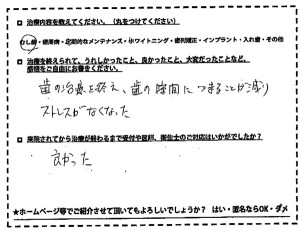 □ 治療内容を教えてください。（丸をつけてください）
むし歯・歯周病・定期的なメンテナンス・ホワイトニング・歯列矯正・インプラント・入れ歯・その他
□ 治療を終えられて、うれしかったこと、良かったこと、大変だったことなど、
感想をご自由にお書きください。
歯の治療を終え、歯の隙間につまることが減り
ストレスがなくなった
□ 来院されてから治療が終わるまで受付や医師、衛生士のご対応はいかがでしたか？
良かった
★ホームページ等でご紹介させて頂いてもよろしいでしょうか？ はい・匿名ならOK・ダメ